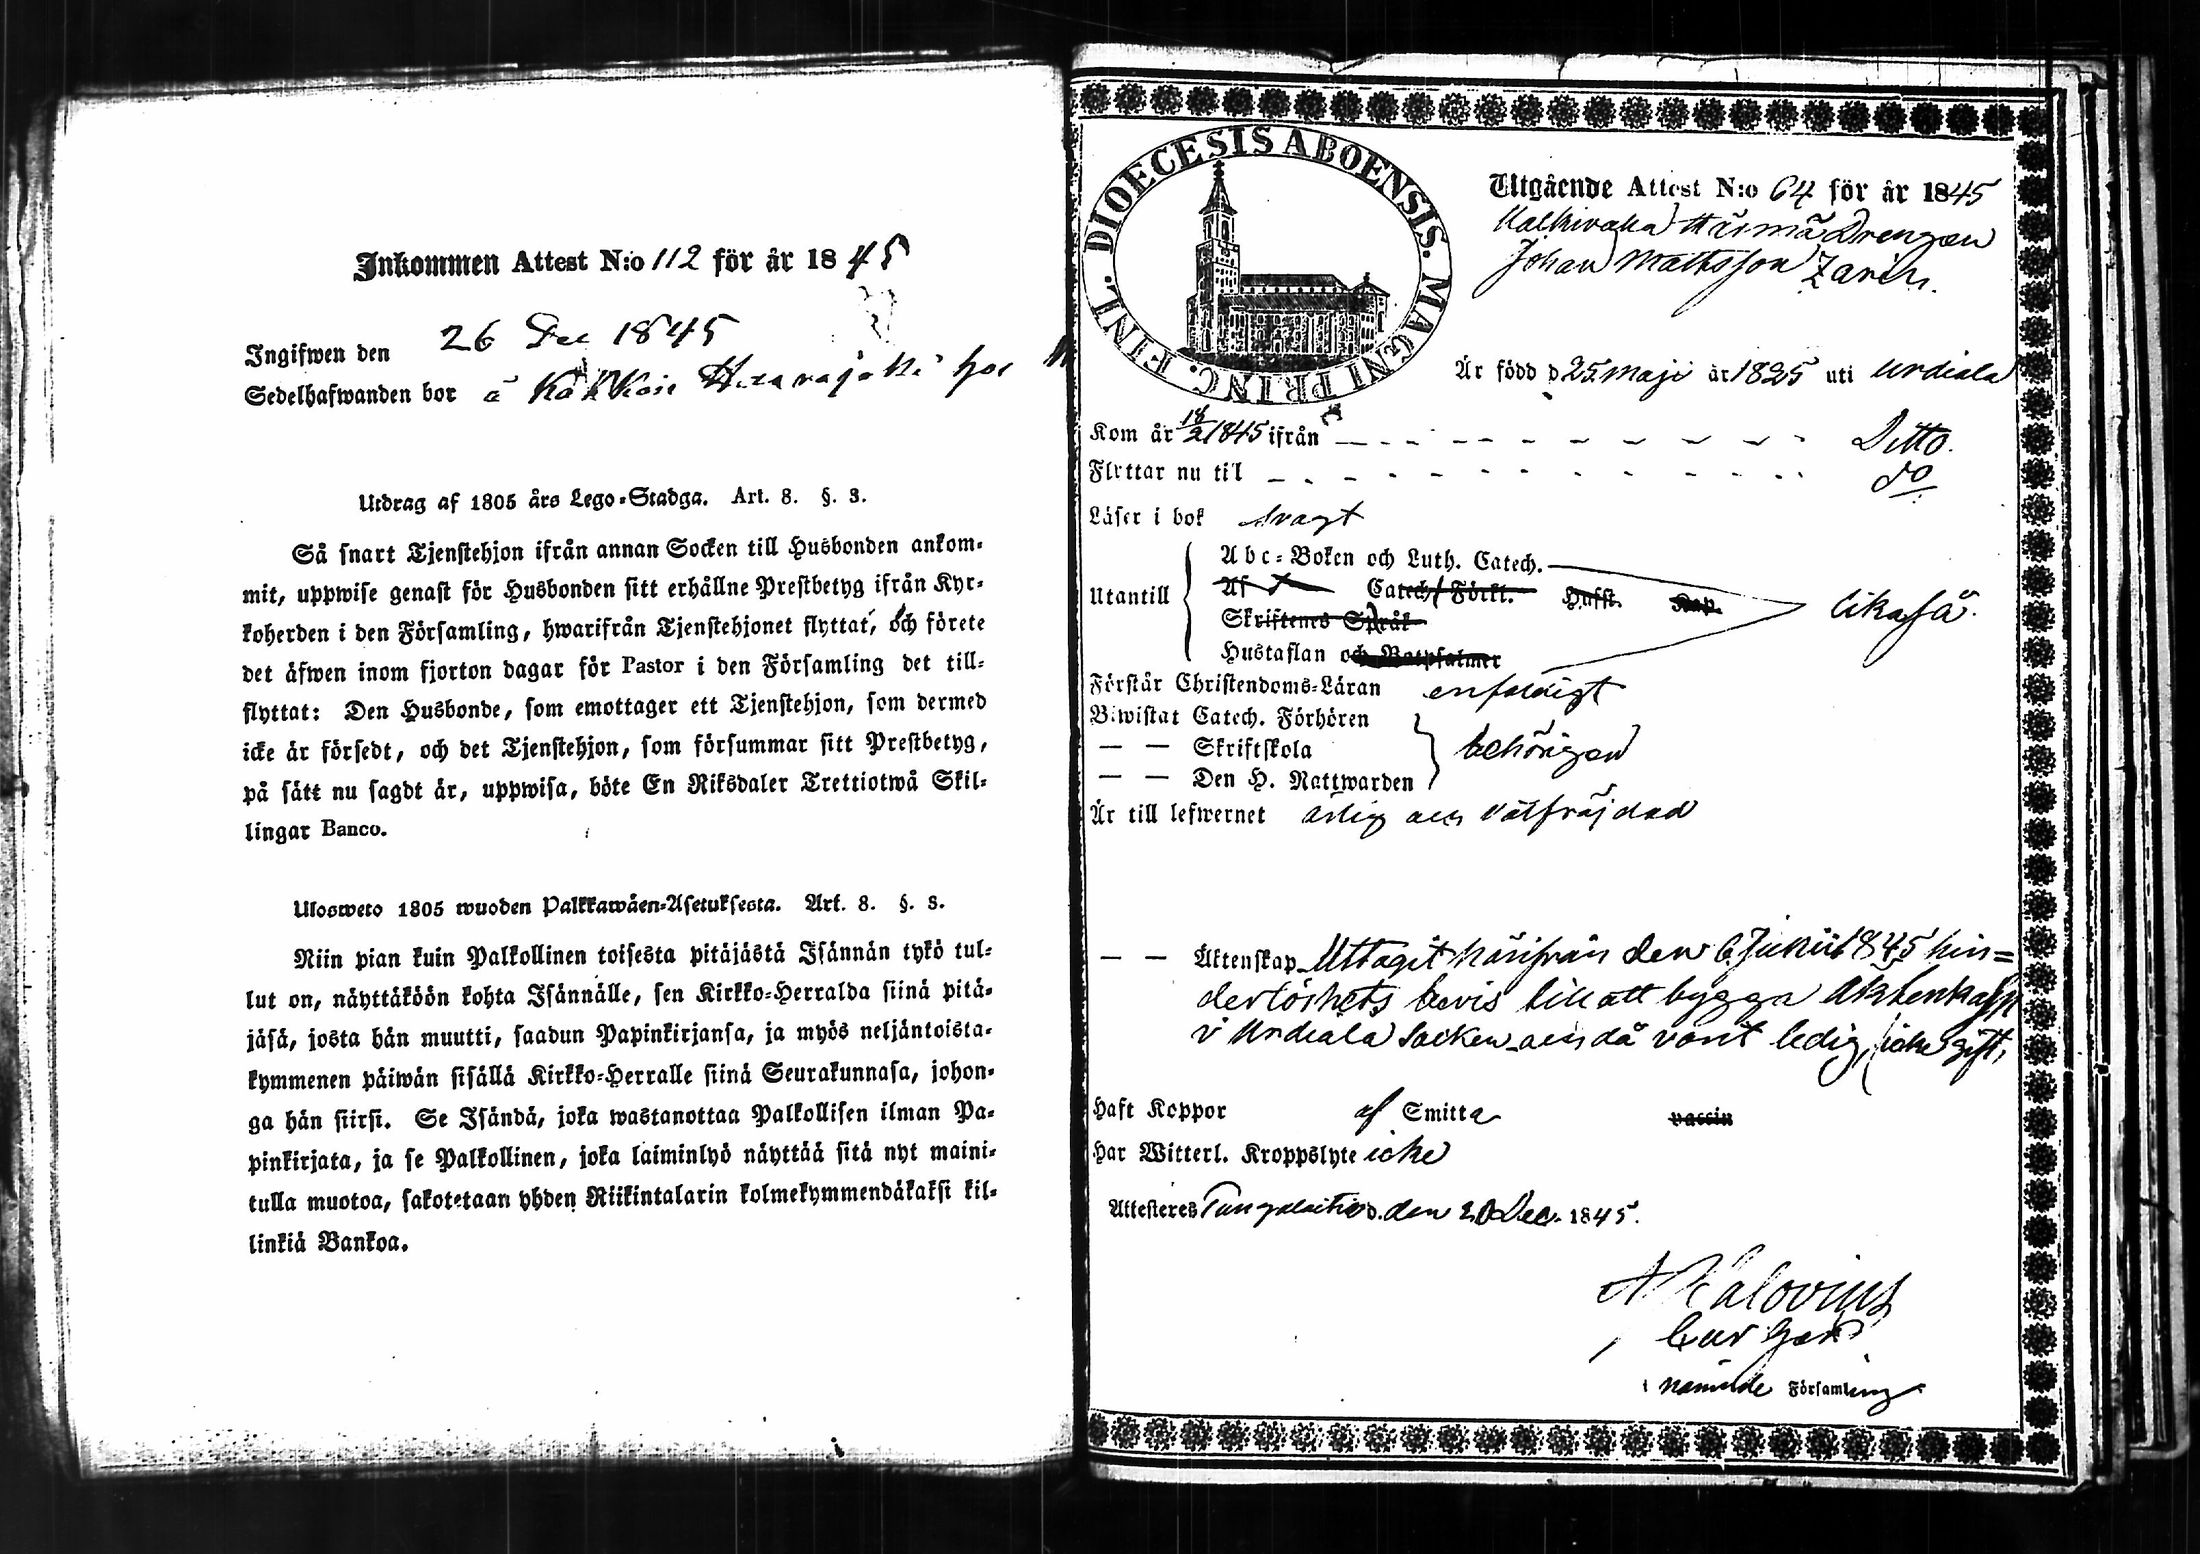 Inkommen Attest N:o 112 för år 1845
Ingifwen den 26 Dec 1845
Sedelhafwanden bor å hos
Utdrag af 1805 års Lego-Stadga. Art. 8. §. 3.
Så snart Tjenstehjon ifrån annan Socken till Husbonden ankom-
mit, uppwise genast för Husbonden sitt erhållne Prestbetyg ifrån Kyr-
koherden i den Församling, hwarifrån Tjenstehjonet flyttat, och förete
det äfwen inom fjorton dagar för Pastor i den Församling det till-
flyttat: Den Husbonde, som emottager ett Tjenstehjon, som dermed
icke är försedt, och det Tjenstehjon, som försummar sitt Prestbetyg,
på sätt nu sagdt är, uppwisa, böte En Riksdaler Trettiotwå Skil-
lingar Banco.
Ulosweto 1805 wuoden Palkkawäen-Asetuksesta. Art. 8. §. 3.
Niin pian kuin Palkollinen toisesta pitäjästä Isännän tykö tul-
lut on, näyttäköön kohta Isännälle, sen Kirkko-Herralda siinä pitä-
jäsä, josta hän muutti, saadun Papinkirjansa, ja myös neljäntoista-
kymmenen päiwän sisällä Kirkko-Herralle siinä Seurakunnasa, johon-
ga hän siirsi. Se Isändä, joka wastanottaa Palkollisen ilman Pa-
pinkirjata, ja se Palkollinen, joka laiminlyö näyttää sitä nyt maini-
tulla muotoa, sakotetaan yhden Riikintalarin kolmekymmendäkaksi kil-
linkiä Bankoa.
DIOECESIS ABOENSIS. MAGNI PRINC. FINL.
Utgående Attest N:o 64 för år 1845
Drengen
Johan Mattsson Zarin.
Är född d 25 Maji år 1825 uti Urdiala
Kom år 18/2 1845 ifrån Ditto.
Flyttar nu til do
Läser i bok svagt
Utantill
Abc-Boken och Luth. Catech.
Af Catech. Förkl. Hufst. Kap.
Skriftenes Språk
Hustaflan och Botpsalmer
likaså.
Förstår Christendoms-Läran enfaldigt
Biwistat Catech. Förhören
— — Skriftskola
— — Den H. Nattwarden
behörigen
Är till lefwernet ärlig och välfräjdad
— — Äktenskap Uttagit härifrån den 6 Junii 1845 hin=
derlöshets bevis till att bygga Äktenskap
i Urdiala Socken och då varit ledig, icke gift,
Haft Koppor af Smitta vaccin
Har Witterl. Kroppslyte icke
Attesteres d. den 20 Dec. 1845.
nämnde Församling